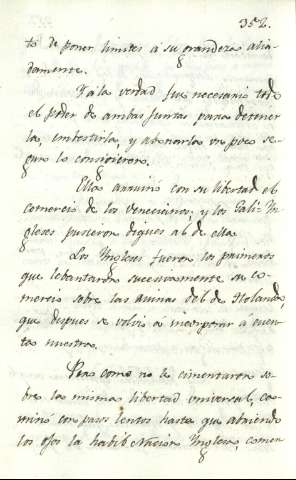 352.
to de poner limites á su grandeza alia-
damente.
Y a la verdad fue necesario todo
el poder de ambas juntas para detener
la, embestirla, y abonarla un poco se-
gun lo consiguieron.
Ella arruinó con su libertad el
comercio de los Venecianos; y los
Ingleses pusieron diques al de ella.
Los Yngleses fueron los primeros
que lebantaron sucesivamente su co-
mercio sobre las ruinas del de Holanda,
que despues se volvió á incorporar á cuen-
ta nuestra.
Pero como no le cimentaron so-
bre la misma libertad universal, ca-
minó con pasos lentos hasta que abriendo
los ojos la habil Nacion Ynglesa, comen